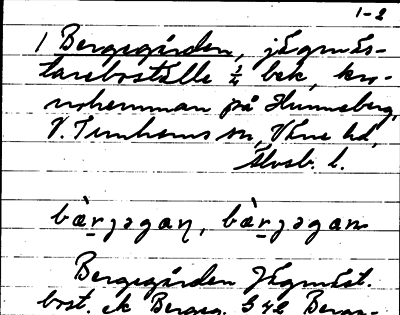 1-2
1 Bergsgården, jägmäs-
tareboställe 1/4 bek, kro-
nohemman på Hunneberg,
V. Tunhems sn, Väne hd,
Älvsb. l.
bæ̀rjəgaɳ, bæ̀rjəgan
Bergsgården Jägmäst.
bost. ek